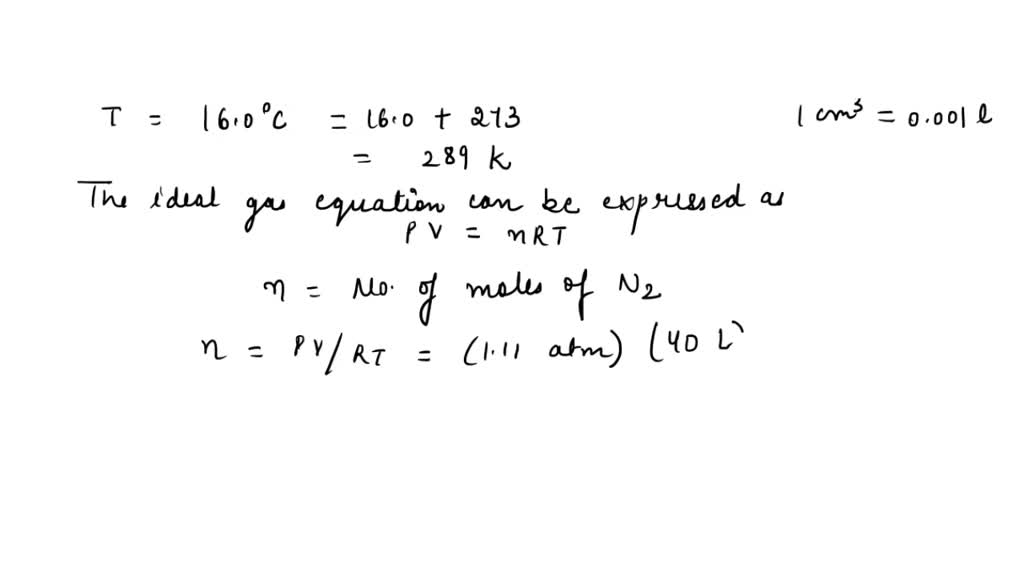 T = 16.0°C = 16.0 + 273 1 cm³ = 0.001 l
= 289 k
The ideal gas equation can be expressed as
PV = nRT
n = No. of moles of N₂
n = PV/RT = (1.11 atm) (40 L)